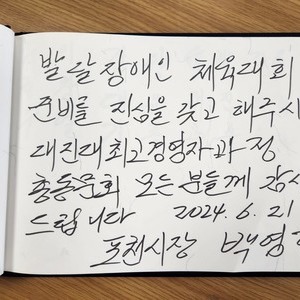 발달장애인 체육대회
준비를 진심을 갖고 해주시
대진대최고경영자과정
총동문회 모든 분들께 감사
드립니다 2024. 6. 21
포천시장 백영